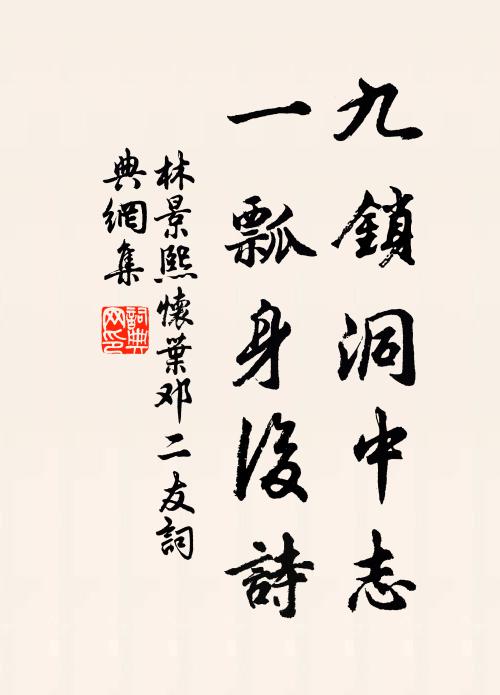 九鎖洞中志
一瓢身後詩
林景熙懷葉邓二友詞
典網集
詞典
网印